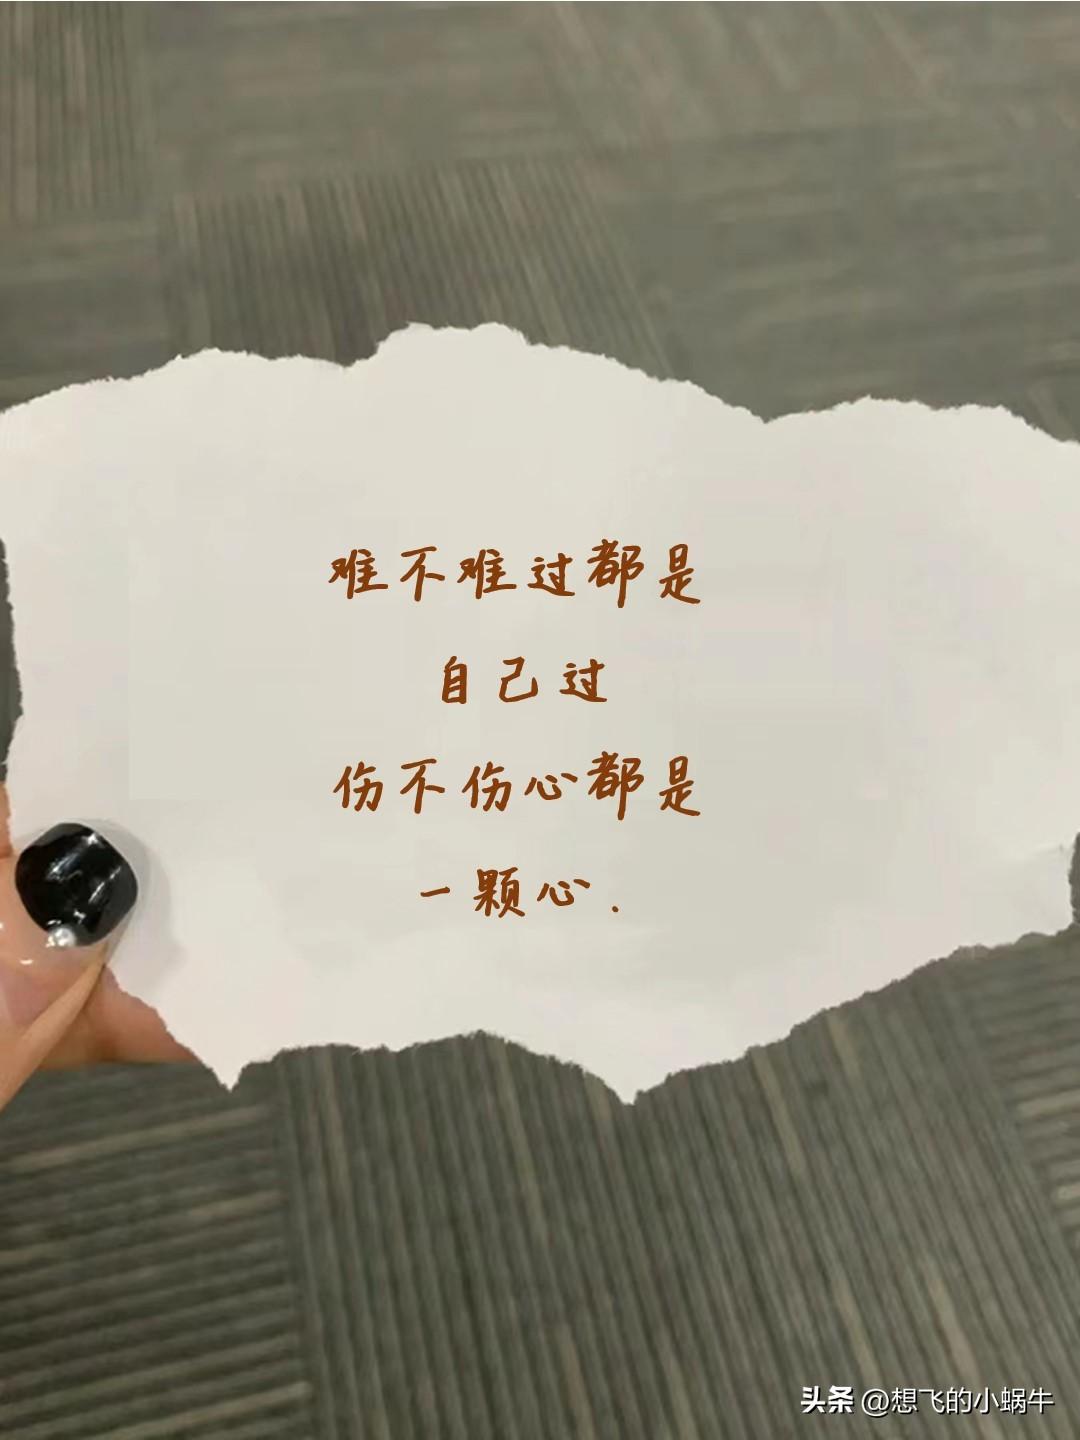 难不难过都是
自己过
伤不伤心都是
一颗心.
头条 @想飞的小蜗牛